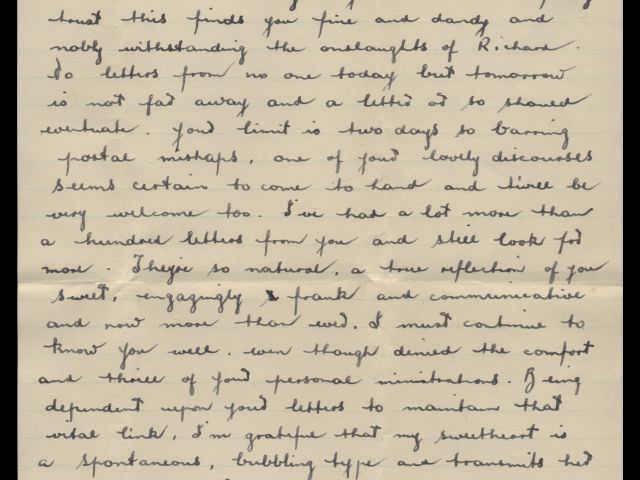 trust this finds you fine and dandy and
nobly withstanding the onslaughts of Richard.
No letters from no one today but tomorrow
is not far away and a letter or so should
eventuate. Your limit is two days so barring
postal mishaps, one of your lovely discourses
seems certain to come to hand and t'will be
very welcome too. I've had a lot more than
a hundred letters from you and still look for
more. They're so natural, a true reflection of you
sweet, engagingly frank and communicative
and now more than ever. I must continue to
know you well. even though denied the comfort
and thrill of your personal ministrations. Being
dependent upon your letters to maintain that
vital link, I'm grateful that my sweetheart is
a spontaneous, bubbling type and transmits her